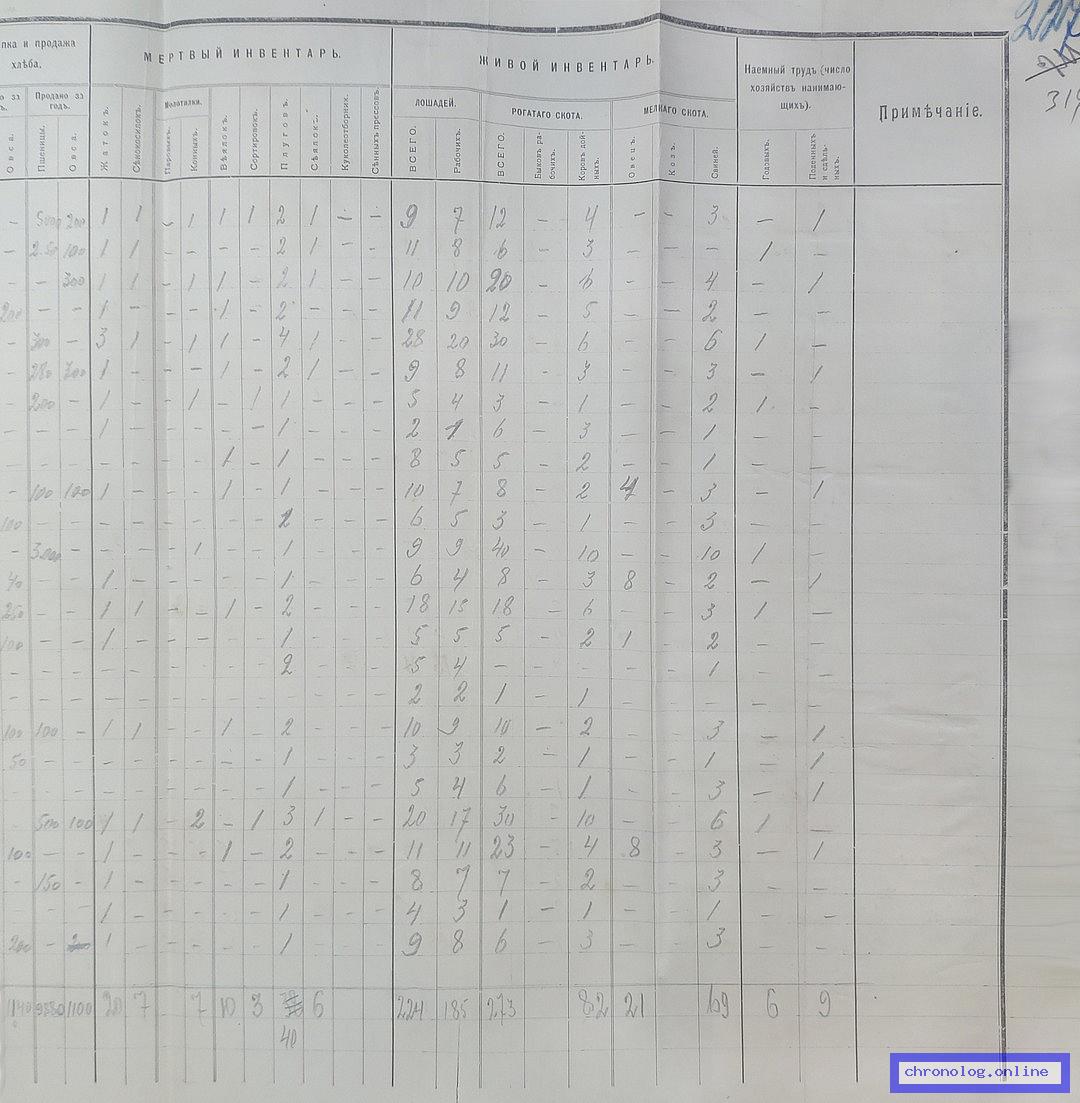 227
319
пка и продажа хлѣба.
МЕРТВЫЙ ИНВЕНТАРЬ.
ЖИВОЙ ИНВЕНТАРЬ.
Наемный трудъ (число хозяйствъ нанимающихъ).
Примѣчаніе.
Продано за годъ.
Молотилки.
ЛОШАДЕЙ.
РОГАТАГО СКОТА.
МЕЛКАГО СКОТА.
Овса. Пшеницы. Овса. Жатокъ. Сѣнокосилокъ. Паровыхъ. Конныхъ. Вѣялокъ. Сортировокъ. Плуговъ. Сѣялокъ. Куколеотборник. Сѣнныхъ прессовъ. ВСЕГО. Рабочихъ. ВСЕГО. Быковъ рабочихъ. Коровъ дойныхъ. Овецъ. Козъ. Свиней. Годовыхъ. Поденныхъ и сдѣльныхъ.
– 5000 200 1 1 – 1 1 1 2 1 – – 9 7 12 – 4 – – 3 – 1
– 250 100 1 1 – – – – 2 1 – – 11 8 6 – 3 – – – 1 –
– – 300 1 1 – 1 1 – 2 1 – – 10 10 20 – 6 – – 4 – 1
200 – – 1 – – – 1 – 2 – – – 11 9 12 – 5 – – 2 – –
– 300 – 3 1 – 1 1 – 4 1 – – 28 20 30 – 6 – – 6 1 –
– 280 300 1 – – – 1 – 2 1 – – 9 8 11 – 3 – – 3 – 1
– 200 – 1 – – 1 – 1 1 – – – 5 4 3 – 1 – – 2 1 –
– – – 1 – – – – – 1 – – – 2 1 6 – 3 – – 1 – –
– – – – – – – 1 – 1 – – – 8 5 5 – 2 – – 1 – –
– 100 100 1 – – – 1 – 1 – – – 10 7 8 – 2 4 – 3 – 1
100 – – – – – – – – 2 – – – 6 5 3 – 1 – – 3 – –
– 3000 – – – – 1 – – 1 – – – 9 9 40 – 10 – – 10 1 –
40 – – 1 – – – – – 1 – – – 6 4 8 – 3 8 – 2 – 1
250 – – 1 1 – – 1 – 2 – – – 18 15 18 – 6 – – 3 1 –
100 – – 1 – – – – – 1 – – – 5 5 5 – 2 1 – 2 – –
– – – – – – – – – 2 – – – 5 4 – – – – – 1 – –
– – – – – – – – – – – – – 2 2 1 – 1 – – – – –
100 100 – 1 1 – – 1 – 2 – – – 10 9 10 – 2 – – 3 – 1
50 – – – – – – – – 1 – – – 3 3 2 – 1 – – 1 – 1
– – – – – – – – – 1 – – – 5 4 6 – 1 – – 3 – 1
– 500 100 1 1 – 2 – 1 3 1 – – 20 17 30 – 10 – – 6 1 –
100 – – 1 – – – 1 – 2 – – – 11 11 23 – 4 8 – 3 – 1
– 150 – 1 – – – – – 1 – – – 8 7 7 – 2 – – 3 – –
– – – 1 – – – – – 1 – – – 4 3 1 – 1 – – 1 – –
200 – 1 – – – – – 1 – – – 9 8 6 – 3 – – 3 – –
1140 1100 20 7 7 10 3 6 224 185 273 82 21 69 6 9
40
chronolog.online